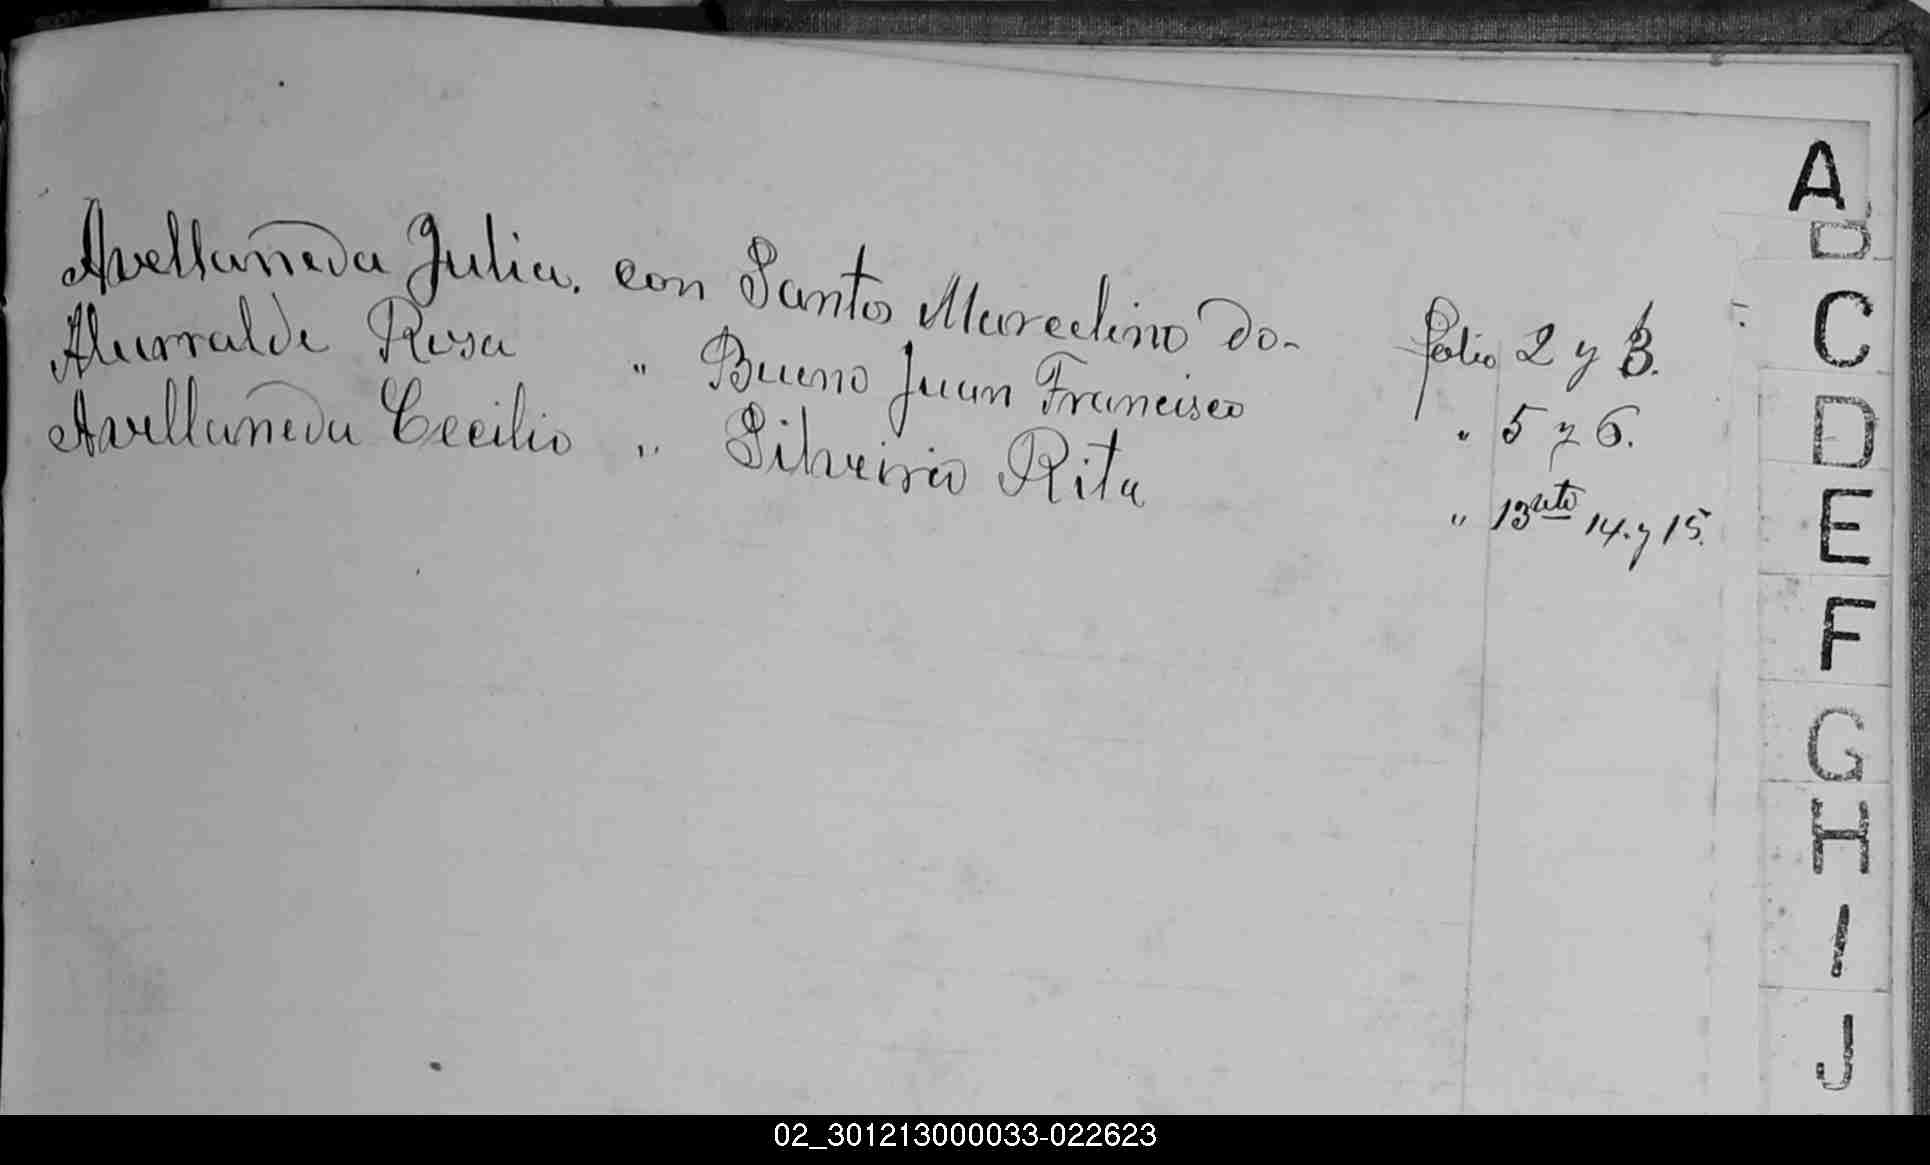 Avellaneda Julia. con Santos Marcelino do- folio 2 y 3.
Alurralde Rosa " Bueno Juan Francisco " 5 y 6.
Avellaneda Cecilio " Silveirio Rita " 13 14. y 15.
A
B
C
D
E
F
G
H
I
J
02_301213000033-022623